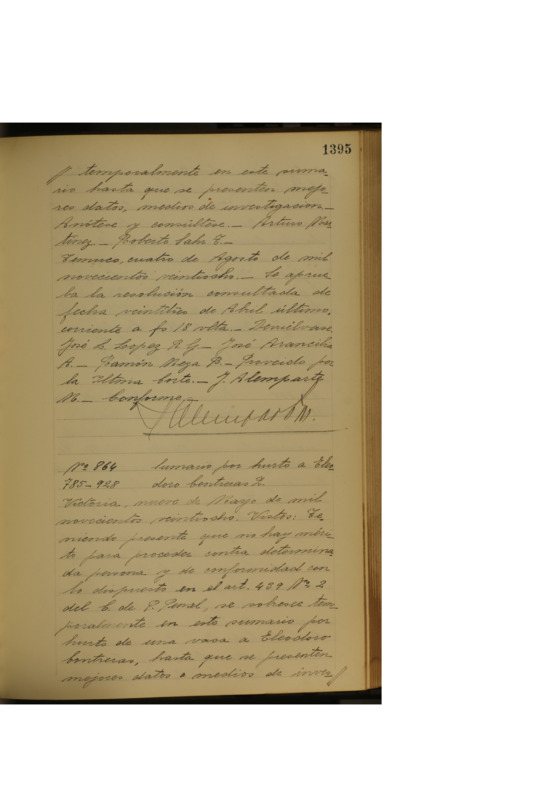 1395
temporalmente en este suma-
rio hasta que se presenten mejo
res datos, medios de investigacion._
Anótese y consúltese._ Arturo Mar
tínez._ Roberto Sahr T._
Temuco, cuatro de Agosto de mil
novecientos veintiocho._ Se aprue
ba la resolución consultada de
fecha veintitres de Abril último,
corriente a fs 18 vlta._ Devuélvase
José L. Lopez R G._ José Arancibia
A._ Ramón Meza R._ Proveido por
la Iltma Corte._ J. Alemparte
M._ Conforme._
J Alemparte M.
Nº 864 Sumario por hurto a Elio
785-928 doro Contreras
Victoria, nueve de Mayo de mil
novecientos veintiocho. Vistos: Te
niendo presente que no hay méri
to para proceder contra determina
da persona y de conformidad con
lo dispuesto en el art. 439 Nº 2
del C. de P. Penal, se sobresee tem
poralmente en este sumario por
hurto de una vaca a Eleodoro
Contreras, hasta que se presenten
mejores datos o medios de inves